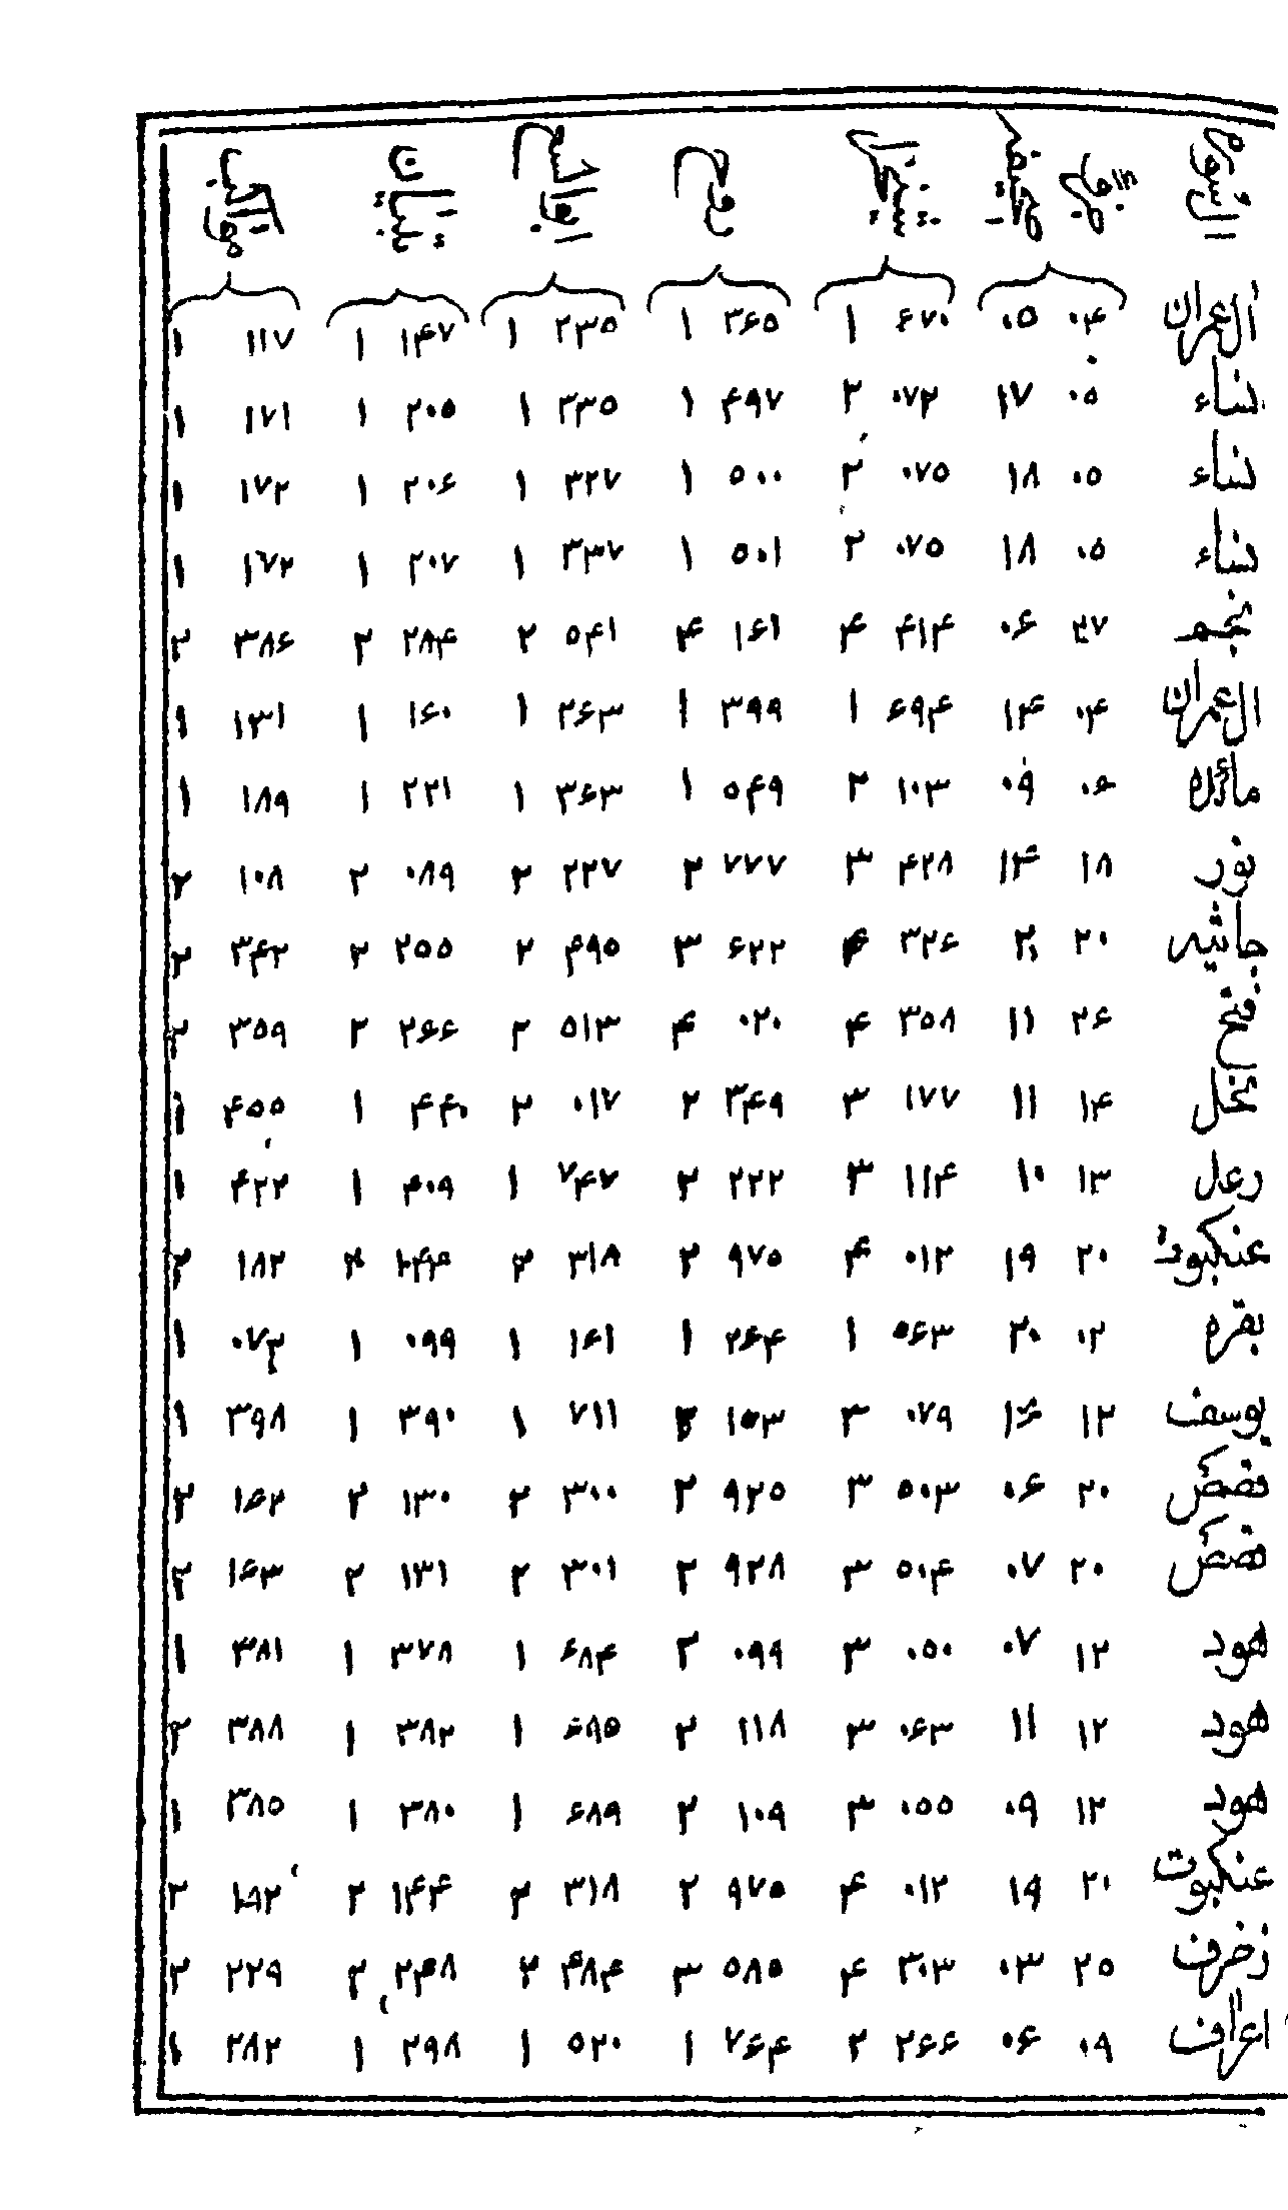 السوره جزء صفحه روح ابوالفتوح تبیان
آل عمران ۰۴ ۰۵ ۶۷۰ ۱ ۳۶۵ ۱ ۲۳۵ ۱ ۱۴۷ ۱ ۱۱۷ ۱
نساء ۰۵ ۱۷ ۰۷۲ ۲ ۴۹۷ ۱ ۲۳۵ ۱ ۲۰۵ ۱ ۱۷۱ ۱
نساء ۰۵ ۱۸ ۰۷۵ ۲ ۵۰۰ ۱ ۳۲۷ ۱ ۲۰۶ ۱ ۱۷۲ ۱
نساء ۰۵ ۱۸ ۰۷۵ ۲ ۵۰۱ ۱ ۳۳۷ ۱ ۲۰۷ ۱ ۱۷۲ ۱
نجم ۲۷ ۰۶ ۴۱۴ ۴ ۱۶۱ ۴ ۵۴۱ ۲ ۲۸۴ ۲ ۳۸۶ ۲
آل عمران ۰۴ ۱۴ ۶۹۴ ۱ ۳۹۹ ۱ ۲۶۳ ۱ ۱۶۰ ۱ ۱۳۱ ۱
مائده ۰۶ ۰۹ ۱۰۳ ۲ ۵۴۹ ۱ ۳۶۳ ۱ ۲۲۱ ۱ ۱۸۹ ۱
نور ۱۸ ۱۴ ۴۲۸ ۳ ۷۷۷ ۲ ۲۲۷ ۲ ۰۸۹ ۲ ۱۰۸ ۲
جاثیه ۲۰ ۳۲۶ ۴ ۶۲۲ ۳ ۴۹۵ ۲ ۲۵۵ ۲ ۳۴۲ ۲
فتح ۲۶ ۱۱ ۳۵۸ ۴ ۰۲۰ ۴ ۵۱۳ ۲ ۲۶۶ ۲ ۳۵۹ ۲
نحل ۱۴ ۱۱ ۱۷۷ ۳ ۳۴۹ ۲ ۰۱۷ ۲ ۴۴۰ ۱ ۴۵۵ ۱
رعد ۱۳ ۱۰ ۱۱۴ ۳ ۲۲۲ ۲ ۷۴۷ ۱ ۴۰۹ ۱ ۴۲۲ ۱
عنکبوت ۲۰ ۱۹ ۰۱۲ ۴ ۹۷۵ ۲ ۳۱۸ ۲ ۱۴۴ ۲ ۱۸۲ ۲
بقره ۰۲ ۲۰ ۵۶۳ ۱ ۲۶۴ ۱ ۱۶۱ ۱ ۰۹۹ ۱ ۰۷۳ ۱
یوسف ۱۲ ۱۶ ۰۷۹ ۳ ۱۵۳ ۲ ۷۱۱ ۱ ۳۹۰ ۱ ۳۹۸ ۱
قصص ۲۰ ۰۶ ۵۰۳ ۳ ۹۲۵ ۲ ۳۰۰ ۲ ۱۳۰ ۲ ۱۶۲ ۲
قصص ۲۰ ۰۷ ۵۰۴ ۳ ۹۲۸ ۲ ۳۰۱ ۲ ۱۳۱ ۲ ۱۶۳ ۲
هود ۱۲ ۰۷ ۰۵۰ ۳ ۰۹۹ ۲ ۶۸۴ ۱ ۳۷۸ ۱ ۳۸۱ ۱
هود ۱۲ ۱۱ ۰۶۳ ۳ ۱۱۸ ۲ ۶۸۵ ۱ ۳۸۲ ۱ ۳۸۸ ۲
هود ۱۲ ۰۹ ۰۵۵ ۳ ۱۰۹ ۲ ۶۸۹ ۱ ۳۸۰ ۱ ۳۸۵ ۱
عنکبوت ۲۰ ۱۹ ۰۱۲ ۴ ۹۷۵ ۲ ۳۱۸ ۲ ۱۴۴ ۲ ۱۹۲ ۲
زخرف ۲۵ ۰۳ ۳۰۳ ۴ ۵۸۵ ۳ ۴۸۴ ۲ ۲۴۸ ۲ ۲۲۹ ۲
اعراف ۰۹ ۰۶ ۲۶۶ ۲ ۷۶۴ ۱ ۵۲۰ ۱ ۲۹۸ ۱ ۲۸۲ ۱